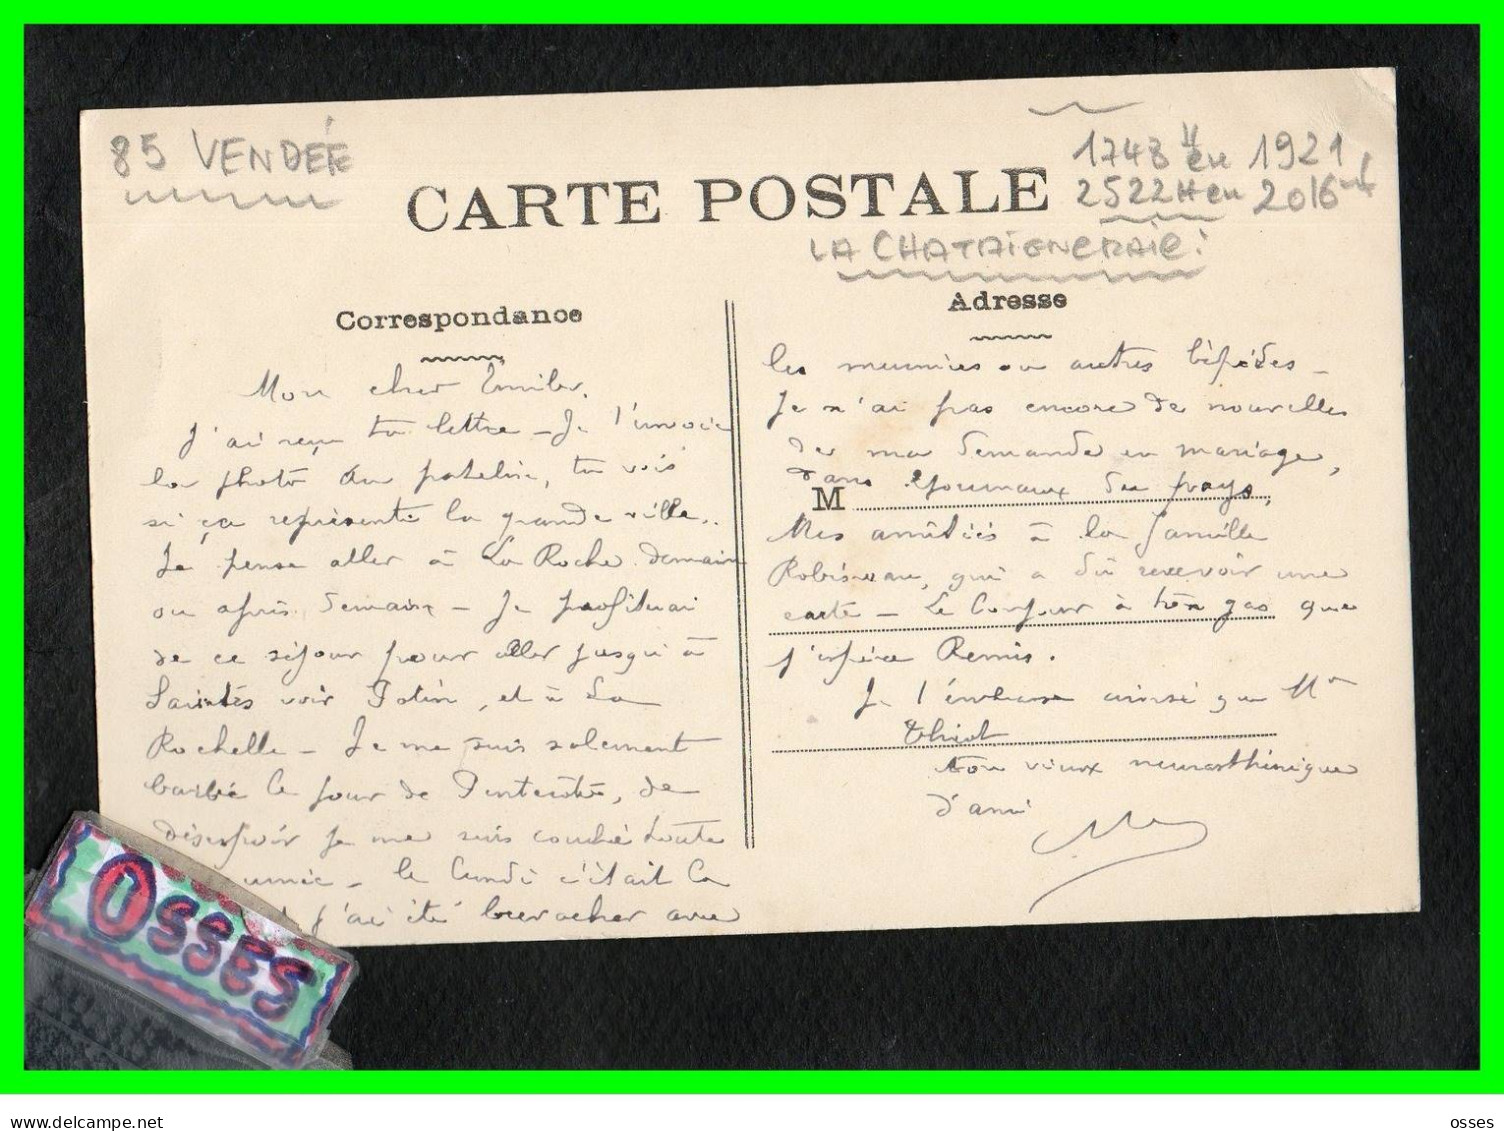 85 VENDÉE
1748 H en 1921
2522 H en 2016
CARTE POSTALE
LA CHATAIGNERAIE
Correspondance
Mon cher Emile,
J'ai reçu ta lettre - Je t'envoie
la photo du patelin, tu vois
si ça représente la grande ville..
Je pense aller à La Roche demain
ou après demain - Je profiterai
de ce séjour pour aller jusqu'à
Saintes voir Potin, et à La
Rochelle - Je me suis salement
barbé le jour de Pentecôte, de
désespoir je me suis couché toute
- le lundi c'était la
j'ai été avec
Adresse
les meunières ou autres bipèdes -
Je n'ai pas encore de nouvelles
de ma demande en mariage,
dans journaux du pays,
M
Mes amitiés à la famille
Robineau, qui a dû recevoir une
carte - Le à très gas que
j'espère Remis.
Je t'embrasse ainsi que Mr
Thiot
ton vieux neurasthénique
d'ami
OSSES
www.delcampe.net
osses